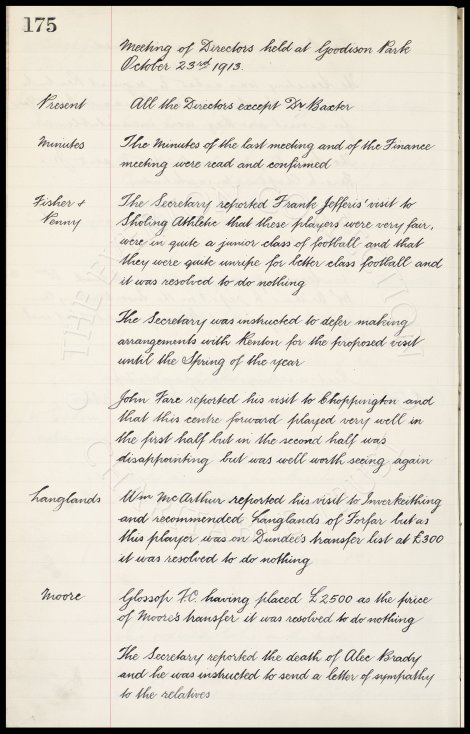 175
Meeting of Directors held at Goodison Park
October 23rd 1913.
Present All the Directors except Dr Baxter
Minutes The Minutes of the last meeting and of the Finance
meeting were read and confirmed
Fisher & The Secretary reported Frank Jefferis' visit to
Penny Sholing Athletic that these players were very fair,
were in quite a junior class of football and that
they were quite unripe for better class football and
it was resolved to do nothing
The Secretary was instructed to defer making
arrangements with Kenton for the proposed visit
until the Spring of the year
John Fare reported his visit to Choppington and
that this centre forward played very well in
the first half but in the second half was
disappointing but was well worth seeing again
Langlands Wm McArthur reported his visit to Inverkeithing
and recommended Langlands of Forfar but as
this player was on Dundee's transfer list at £300
it was resolved to do nothing
Moore Glossop F.C. having placed £2500 as the price
of Moore's transfer it was resolved to do nothing
The Secretary reported the death of Alec Brady
and he was instructed to send a letter of sympathy
to the relatives